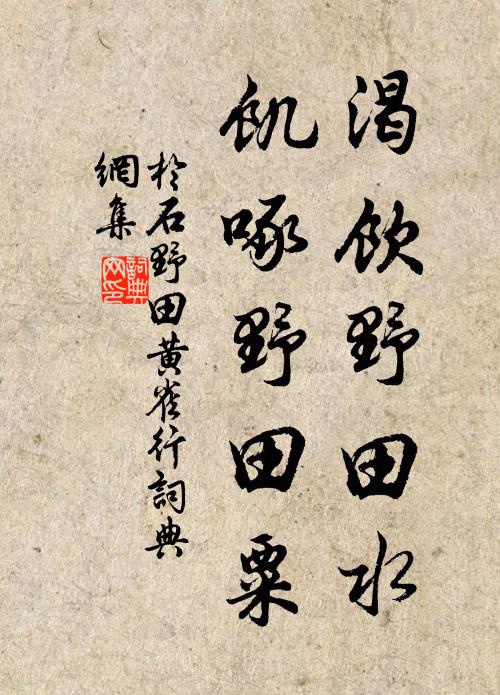 渴飲野田水
飢啄野田粟
於石野田黃雀行詞典
網集
詞典
网印